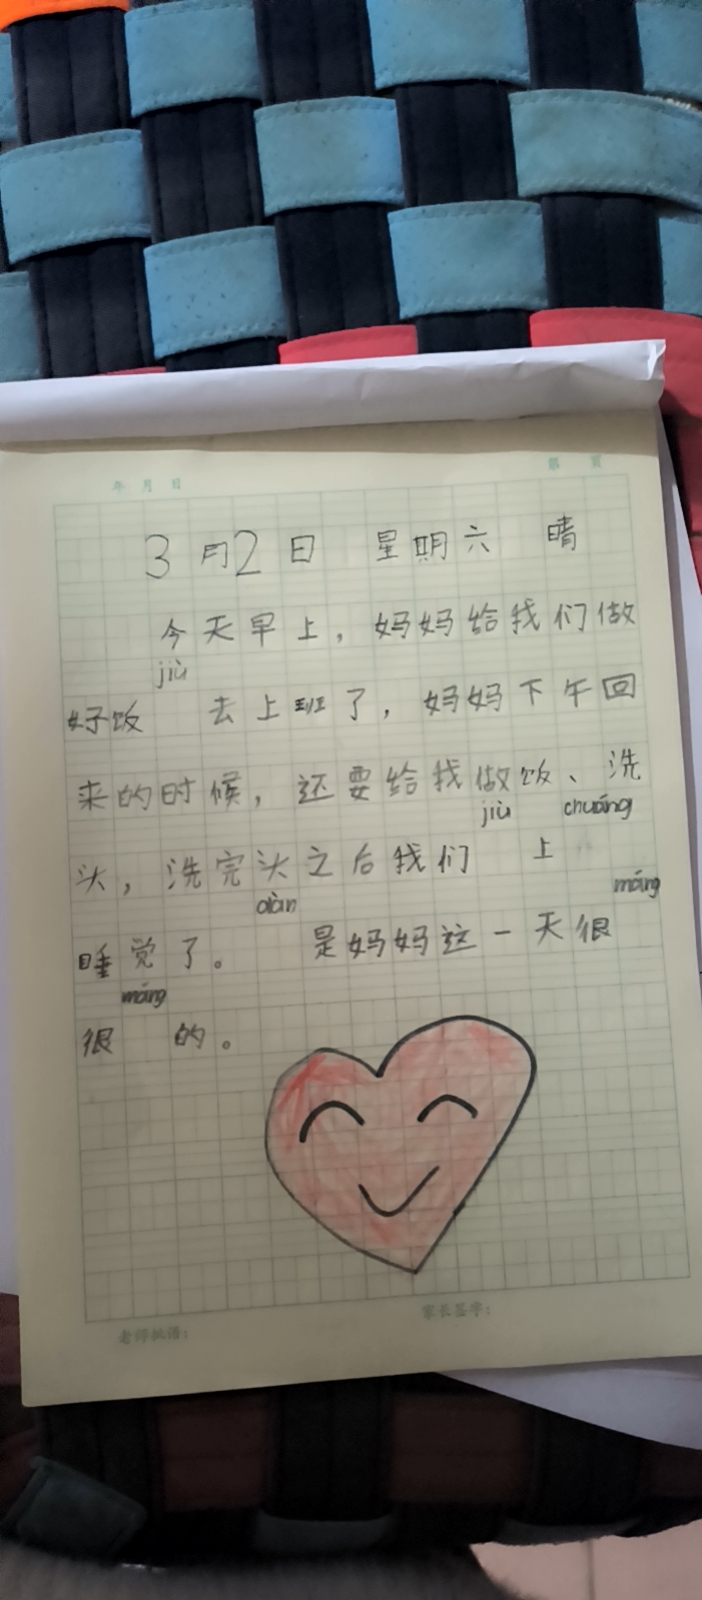 年 月 日 第 页
3月2日 星期六 晴
今天早上，妈妈给我们做
jiù
好饭 去上班了，妈妈下午回
来的时候，还要给我做饭、洗
jiù chuáng
头，洗完头之后我们 上
máng
睡觉了。 是妈妈这一天很
máng
很 的。
老师批语： 家长签字：